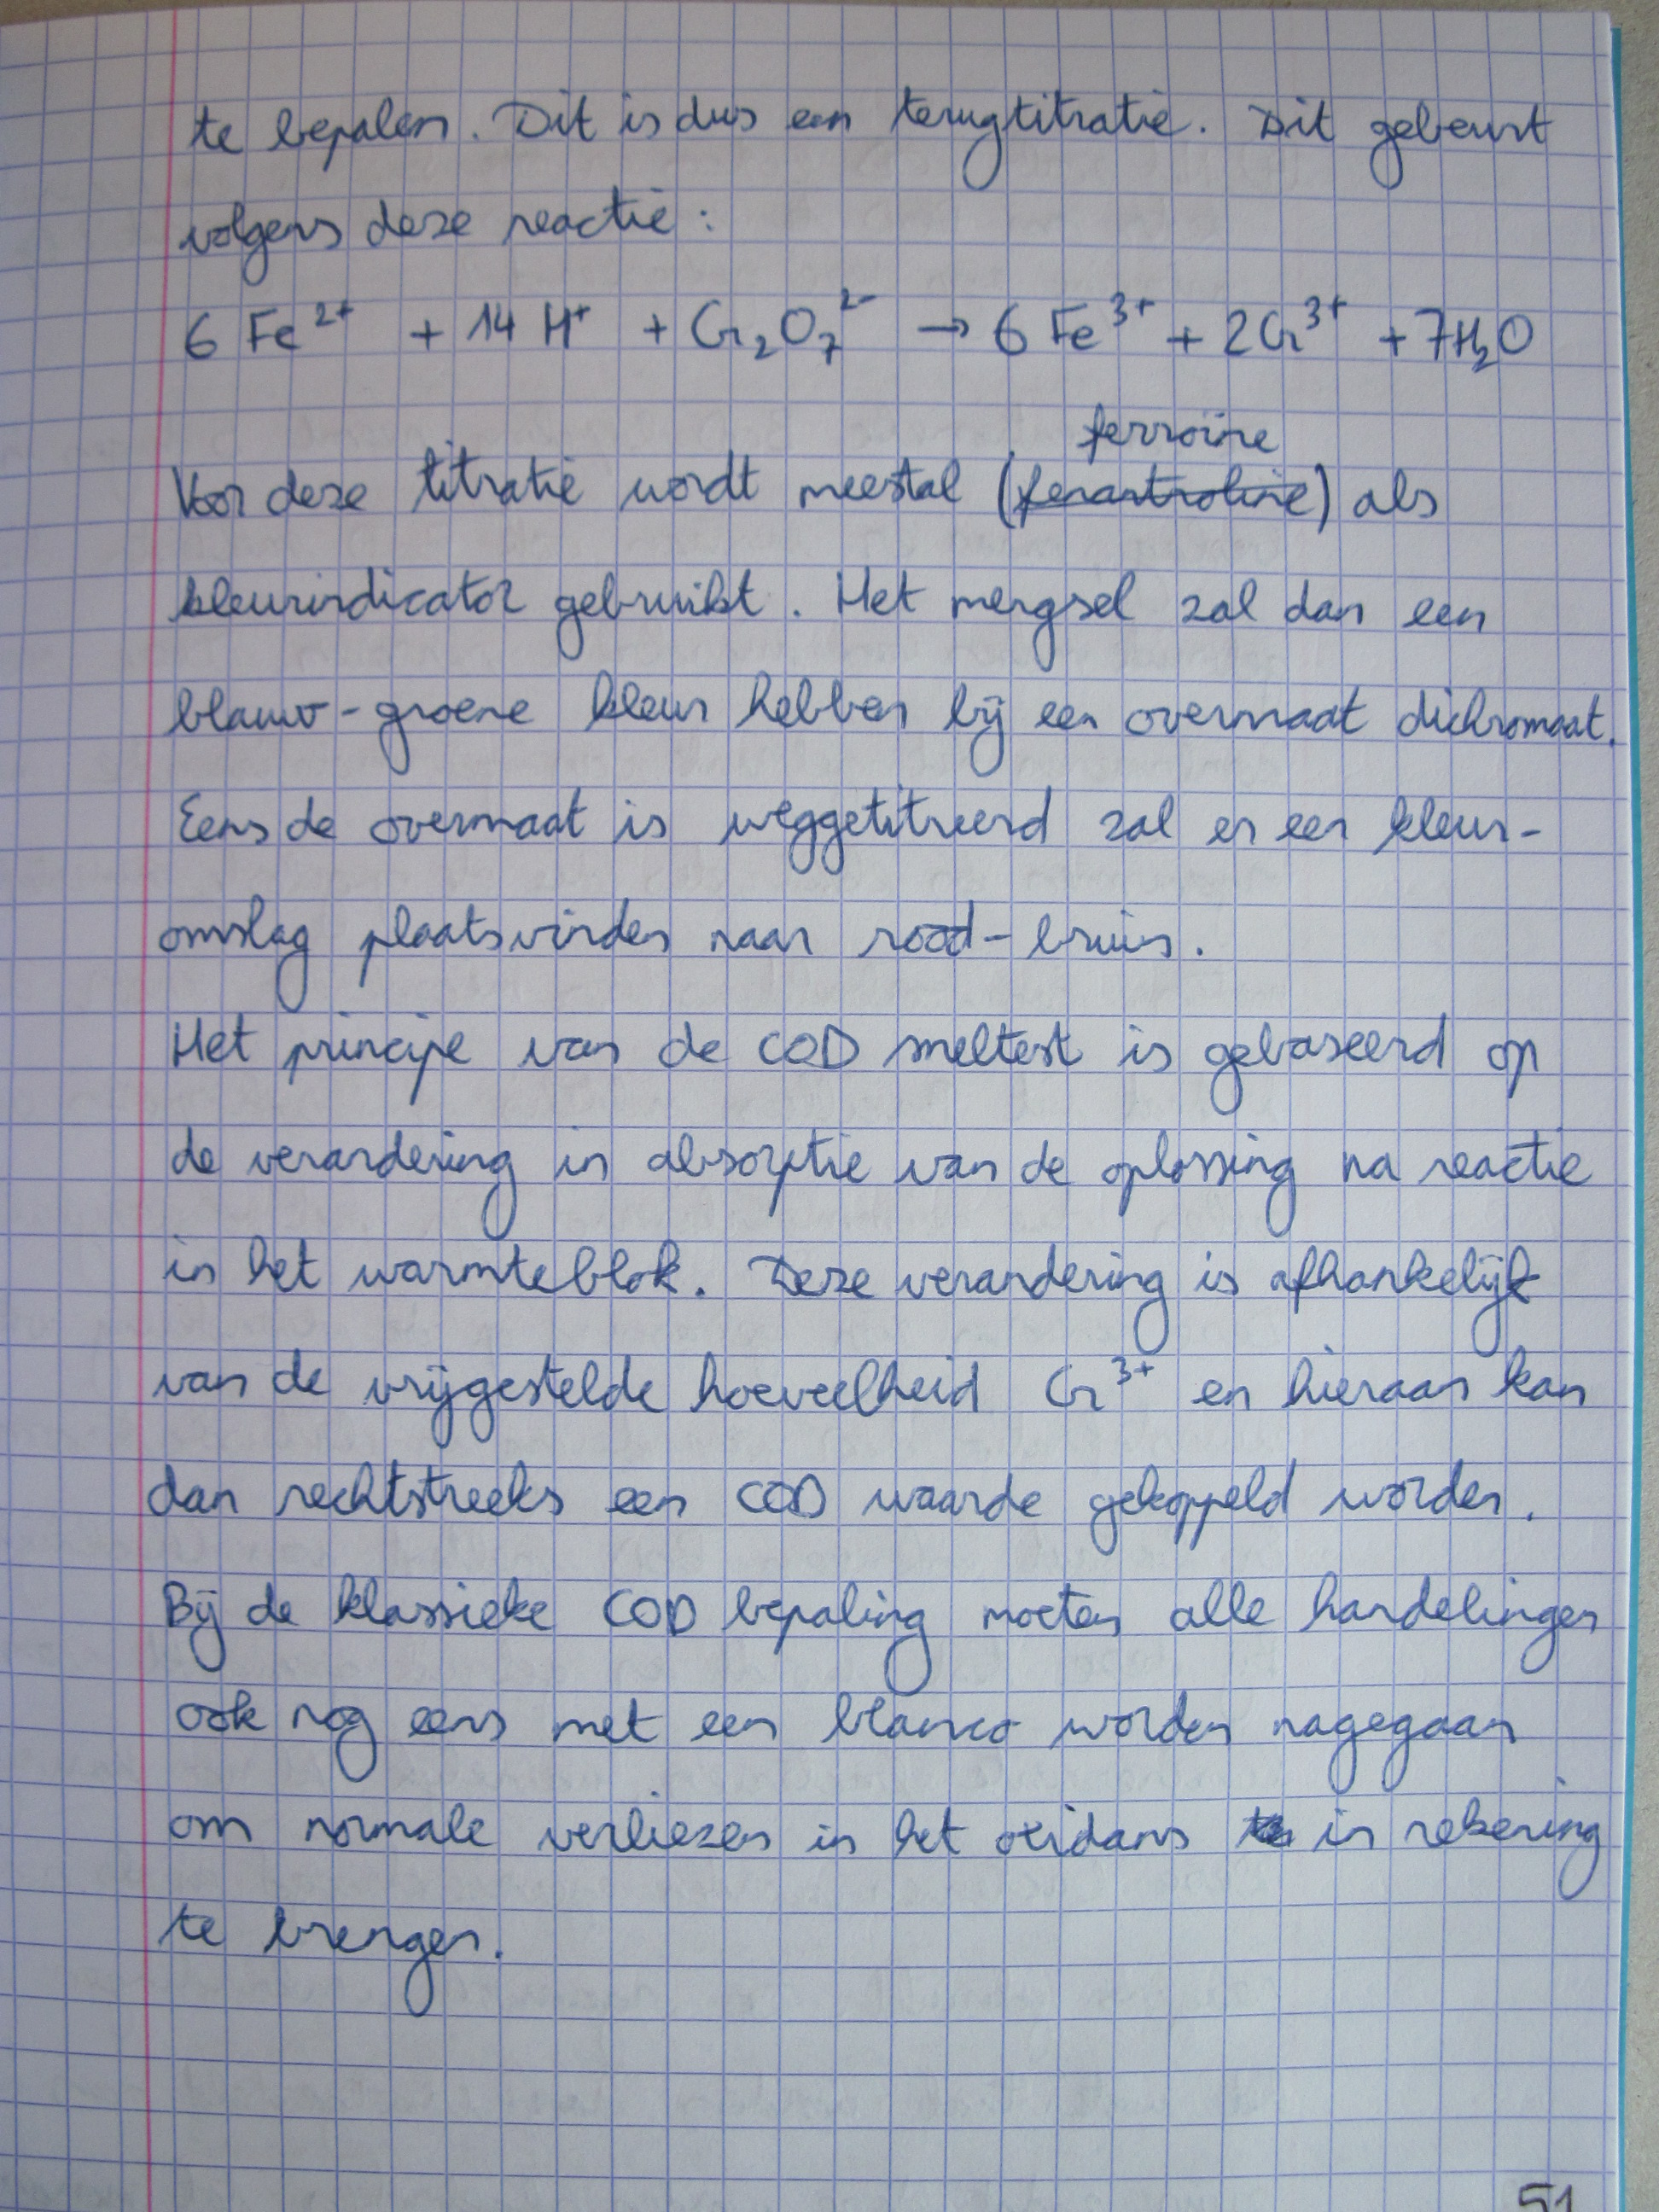 te bepalen. Dit is dus een terugtitratie. Dit gebeurt
volgens deze reactie:
6 Fe²⁺ + 14 H⁺ + Cr₂O₇²⁻ → 6 Fe³⁺ + 2Cr³⁺ + 7H₂O
ferroïne
Voor deze titratie wordt meestal (fenantroline) als
kleurindicator gebruikt. Het mengsel zal dan een
blauw-groene kleur hebben bij een overmaat dichromaat.
Eens de overmaat is weggetitreerd zal er een kleur-
omslag plaatsvinden naar rood-bruin.
Het principe van de COD sneltest is gebaseerd op
de verandering in absorptie van de oplossing na reactie
in het warmteblok. Deze verandering is afhankelijk
van de vrijgestelde hoeveelheid Cr³⁺ en hieraan kan
dan rechtstreeks een COD waarde gekoppeld worden.
Bij de klassieke COD bepaling moeten alle handelingen
ook nog eens met een blanco worden nagegaan
om normale verliezen in het oxidans in rekening
te brengen.
51